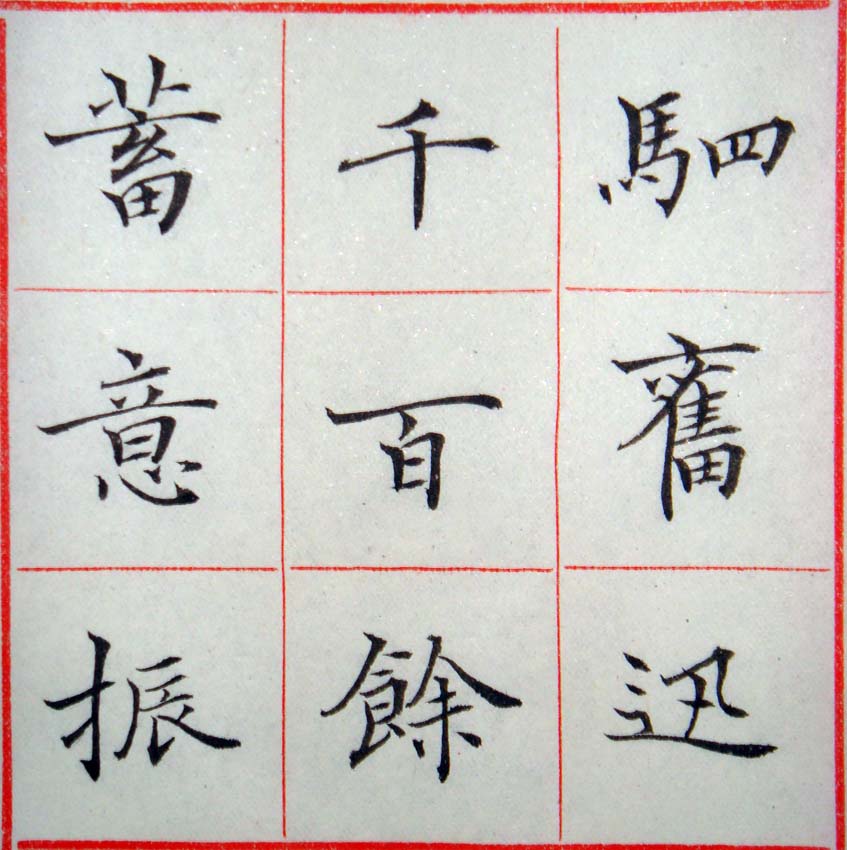 駟奮迅
千百餘
蓄意振